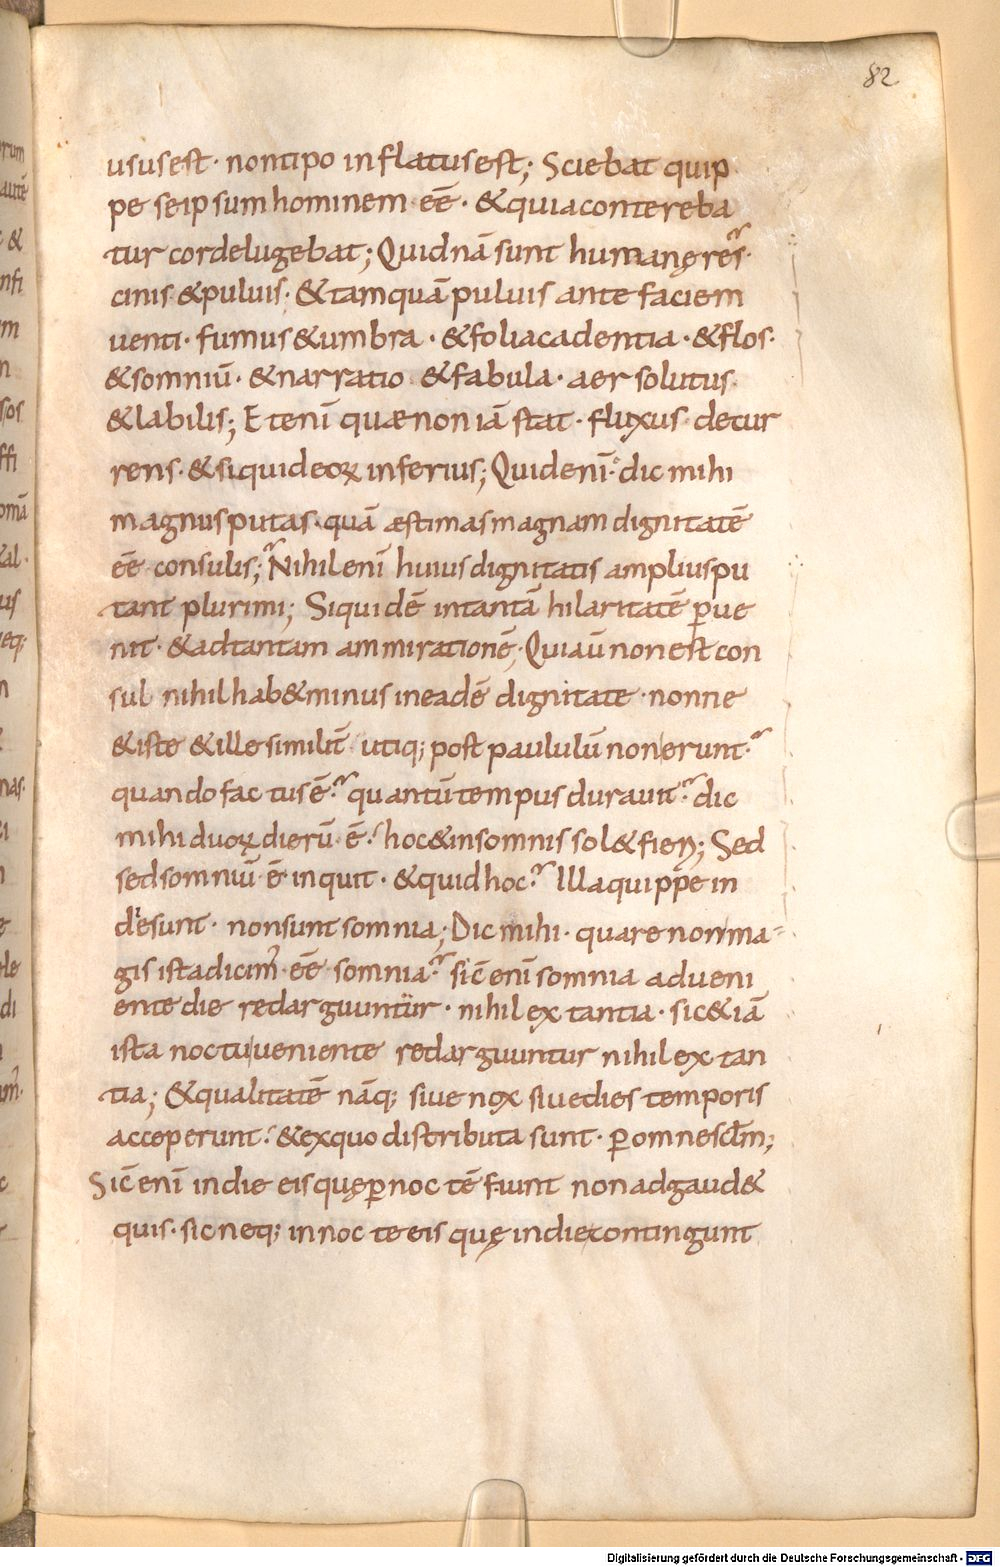 82
usus est · non tipo inflatus est; Sciebat quip
pe seipsum hominem eē · & quia contereba
tur corde lugebat; Quid nā sunt humanę res·
cinis & puluis; & tamquā puluis ante faciem
uenti · fumus & umbra · & folia cadentia · & flos·
& somniū · & narratio & fabula · aer solutus·
& labilis; Etenī quae non iā stat · fluxus decur
rens · & si quid eoꝝ inferius; Quid enī· dic mihi
magnus putas · quā aestimas magnam dignitatē
eē consulis; Nihil enī huius dignitatis amplius pu
tant plurimi; Siquidē in tantā hilaritatē ꝑue
nit · & ad tantam ammirationē; Qui aū non est con
sul nihil hab& minus in eadē dignitate · nonne
& iste & ille similit̄ utiq; post paululū non erunt·
quando factus ē· quantū tempus durauit· dic
mihi duoꝝ dierū ē· hoc & in somnis sol& fieri; Sed
sed somniū ē inquit · & quid hoc· Illa quippe in
die sunt · non sunt somnia; Dic mihi · quare non ma
gis ista dicim̄ eē somnia· sic̄ enī somnia adueni
ente die redarguuntur · nihil extantia · sic & iā
ista noctu ueniente redarguuntur nihil extan
tia; & qualitatē nāq; siue nox siue dies temporis
acceperunt· & ex quo distributa sunt · ꝑ omnes dm̄;
Sic̄ enī in die eis quę ꝑ noctē fiunt non adgaud&
quis · sic neq; in nocte eis quę in die contingunt
Digitalisierung gefördert durch die Deutsche Forschungsgemeinschaft - DFG